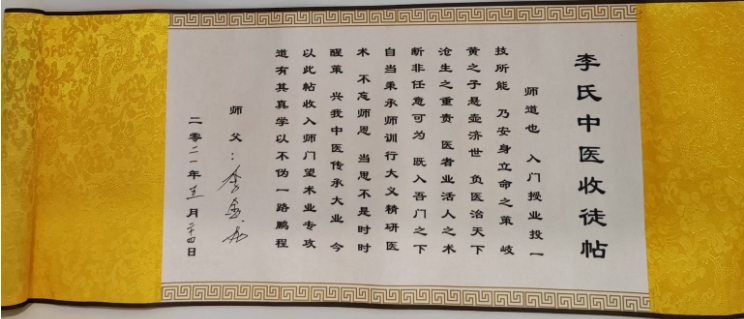 李氏中医收徒帖
师道也 入门授业投一
技所能 乃安身立命之策 岐
黄之子悬壶济世 负医治天下
沧生之重责 医者业活人之术
断非任意可为 既入吾门之下
自当秉承师训行大义精研医
术 不忘师恩 当思不是时时
醒策 兴我中医传承大业 今
以此帖收入师门望术业专攻
道有其真学以不伪一路鹏程
师父：李
二零二一年 月 日